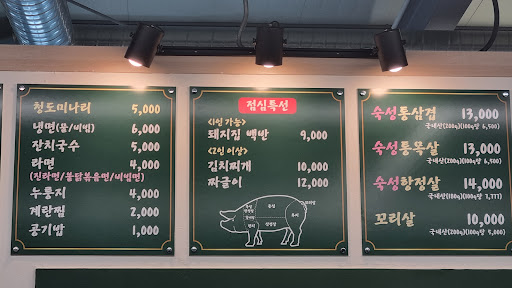 청도미나리 5,000
냉면(물/비빔) 6,000
잔치국수 5,000
라면 4,000
(진라면/불닭볶음면/비빔면)
누룽지 4,000
계란찜 2,000
공기밥 1,000
점심특선
<1인 가능>
돼지집 백반 9,000
<2인 이상>
김치찌개 10,000
짜글이 12,000
숙성통삼겹 13,000
국내산(200g)(100g당 6,500)
숙성통목살 13,000
국내산(200g)(100g당 6,500)
숙성항정살 14,000
국내산(180g)(100g당 7,777)
꼬리살 10,000
국내산(200g)(100g당 5,000)